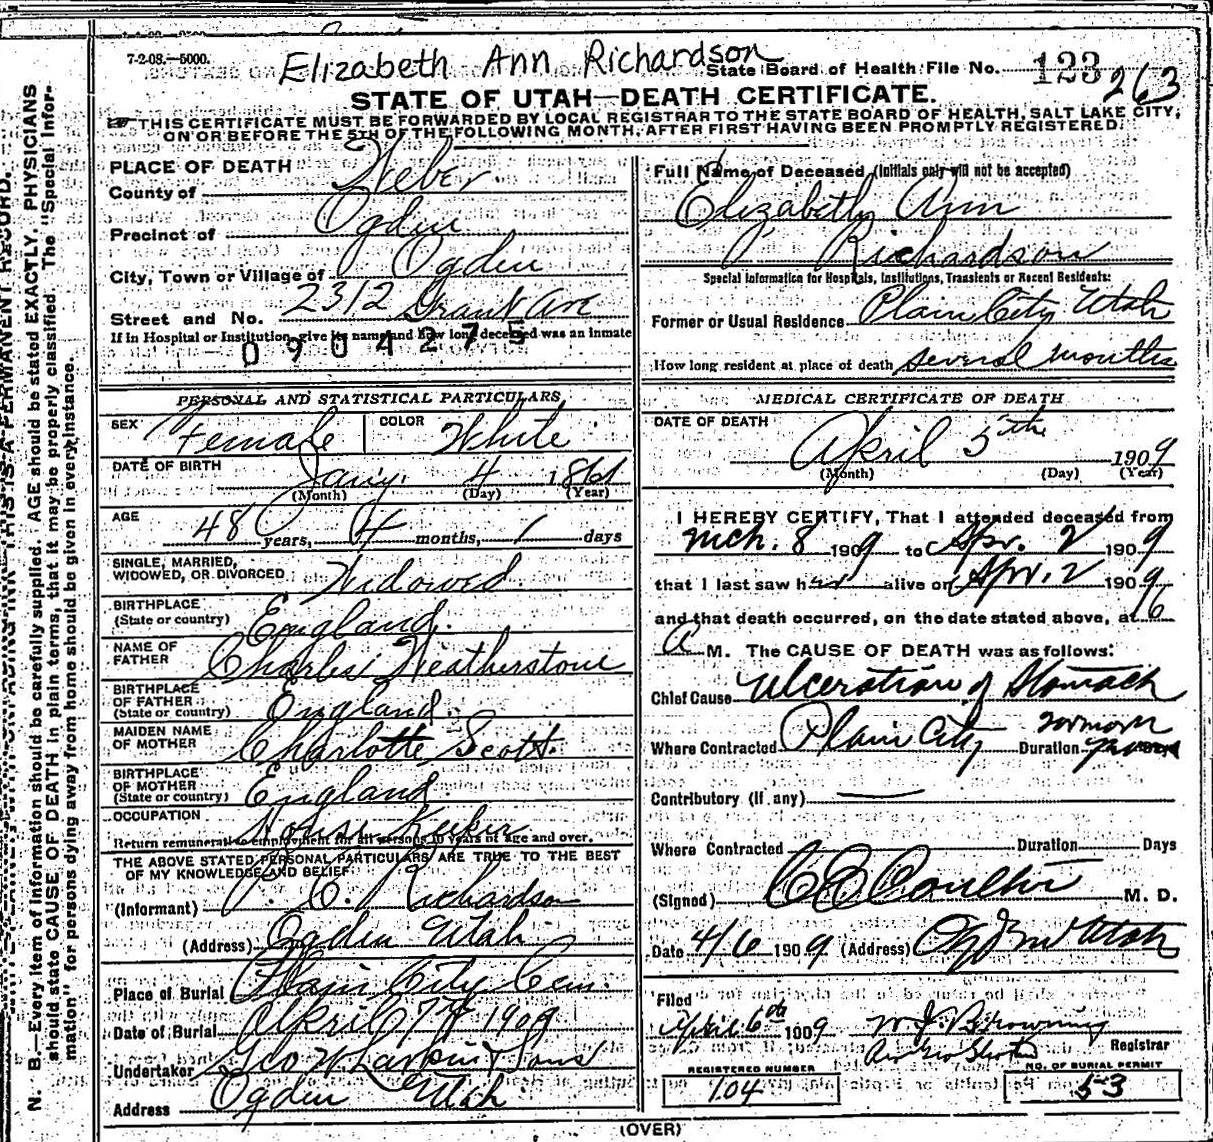 7-2-08.—5000.
Elizabeth Ann Richardson
State Board of Health File No. 123
263
STATE OF UTAH—DEATH CERTIFICATE.
THIS CERTIFICATE MUST BE FORWARDED BY LOCAL REGISTRAR TO THE STATE BOARD OF HEALTH, SALT LAKE CITY,
ON OR BEFORE THE 5TH OF THE FOLLOWING MONTH, AFTER FIRST HAVING BEEN PROMPTLY REGISTERED.
PLACE OF DEATH
County of Weber
Precinct of Ogden
City, Town or Village of Ogden
Street and No. 2312 Grant Ave
If in Hospital or Institution, give its name and how long deceased was an inmate
0904275
PERSONAL AND STATISTICAL PARTICULARS
SEX Female COLOR White
DATE OF BIRTH Jany. 4 1861
(Month) (Day) (Year)
AGE 48 years, 4 months, 1 days
SINGLE, MARRIED,
WIDOWED, OR DIVORCED Widowed
BIRTHPLACE
(State or country) England.
NAME OF
FATHER Charles Weatherstone
BIRTHPLACE
OF FATHER
(State or country) England
MAIDEN NAME
OF MOTHER Charlotte Scott.
BIRTHPLACE
OF MOTHER
(State or country) England
OCCUPATION House Keeker
Return remunerative employment for all persons 10 years of age and over.
THE ABOVE STATED PERSONAL PARTICULARS ARE TRUE TO THE BEST
OF MY KNOWLEDGE AND BELIEF
(Informant) P. C. Richardson
(Address) Ogden Utah
Place of Burial Plain City Cem.
Date of Burial April 7th 1909
Undertaker Geo W Larkin & Sons
Address Ogden Utah
Full Name of Deceased (Initials only will not be accepted)
Elizabeth Ann
Richardson
Special Information for Hospitals, Institutions, Transients or Recent Residents:
Former or Usual Residence Plain City Utah
How long resident at place of death several months
MEDICAL CERTIFICATE OF DEATH
DATE OF DEATH
April 5th 1909
(Month) (Day) (Year)
I HEREBY CERTIFY, That I attended deceased from
Mch. 8 1909 to Apr. 2 1909
that I last saw her alive on Apr. 2 1909
and that death occurred, on the date stated above, at 6
A M. The CAUSE OF DEATH was as follows:
Chief Cause Ulceration of Stomach
Where Contracted Plain City Duration
Contributory (if any)
Where Contracted Duration Days
(Signed) C E Coulter M. D.
Date 4/6 1909 (Address) Ogden Utah
Filed
April 6th 1909 W J Browning
Registrar
REGISTERED NUMBER
104
NO. OF BURIAL PERMIT
53
(OVER)
N. B.—Every item of information should be carefully supplied. AGE should be stated EXACTLY. PHYSICIANS
should state CAUSE OF DEATH in plain terms, that it may be properly classified. The "Special Infor-
mation" for persons dying away from home should be given in every instance.
THIS IS A PERMANENT RECORD.